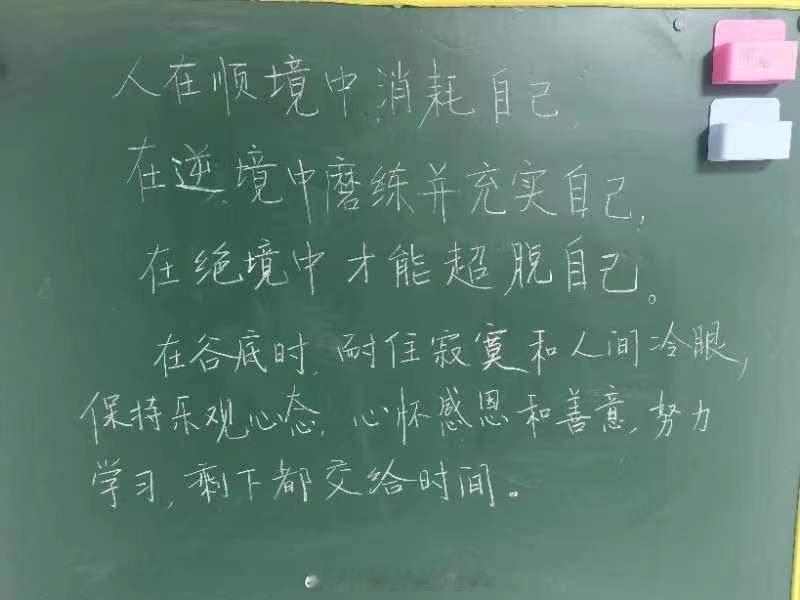 人在顺境中消耗自己,
在逆境中磨练并充实自己,
在绝境中才能超脱自己。
在谷底时,耐住寂寞和人间冷眼,
保持乐观心态,心怀感恩和善意,努力
学习,剩下都交给时间。